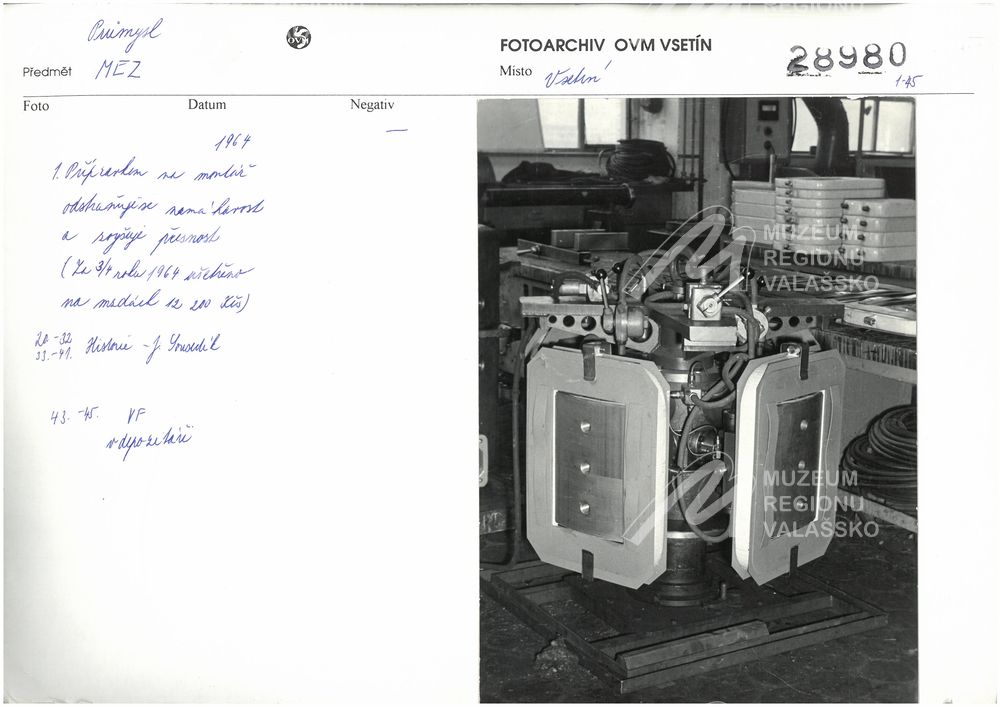 Průmysl
OVM
FOTOARCHIV OVM VSETÍN
28980
Předmět MEZ
Místo Vsetín
1-45
Foto Datum Negativ
1964 —
1. Přípravkem na montáž
odstraňuje se namáhavost
a zvyšuje přesnost
(Za 3/4 roku 1964 ušetřeno
na mzdách 12 200 Kčs)
20.-32.
33.-41. Historie - J. Sousedík
43.-45. VF
v depozitáři
MUZEUM
REGIONU
VALAŠSKO
MUZEUM
REGIONU
VALAŠSKO
REGIONU
VALAŠSKO